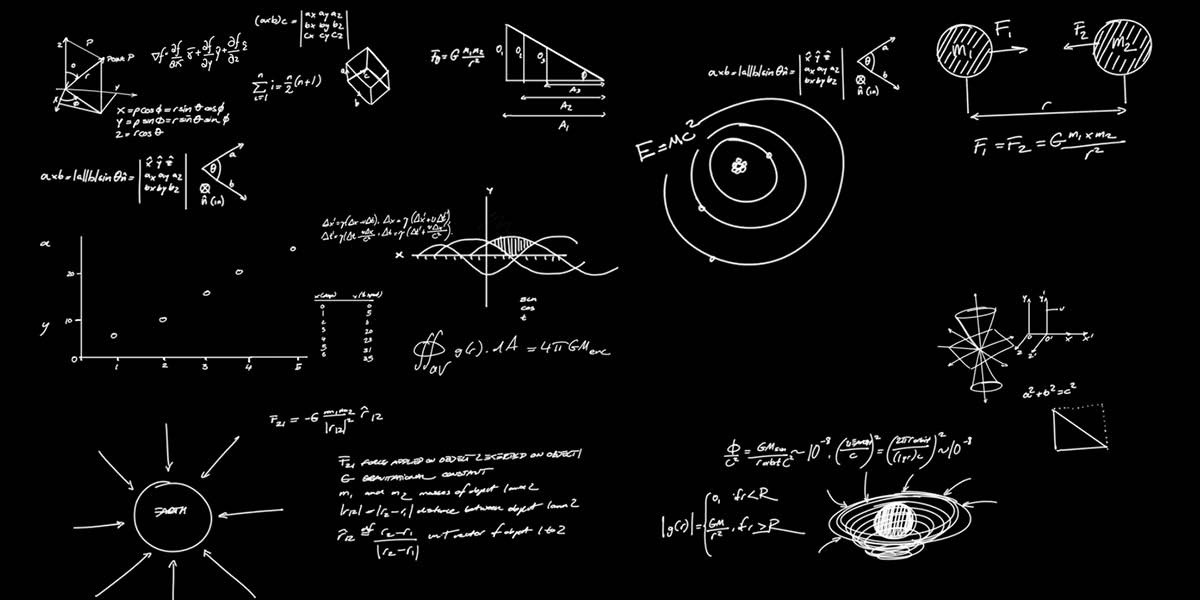 (axb)c = | ax ay az |
bx by bz
Cx Cy Cz
z
P
POINT P
θ
r
x
Y
φ
∇f = ∂f/∂x x̂ + ∂f/∂y ŷ + ∂f/∂z ẑ
n∑i=1 i = n/2 (n+1)
a
b
c
X = ρ cos φ = r sin θ cos φ
Y = ρ sin φ = r sin θ sin φ
Z = r cos θ
F = G m1m2/r²
O1
O2
O3
θ
A3
A2
A1
axb = |a||b| sin θ n̂ = | x̂ ŷ ẑ |
ax ay az
bx by bz
a
θ
b
n̂ (in)
m1
F1
F2
m2
r
F1 = F2 = G m1 x m2/r²
E=MC²
axb = |a||b| sin θ n̂ = | x̂ ŷ ẑ |
ax ay az
bx by bz
a
θ
b
n̂ (in)
Δx' = γ(Δx-vΔt), Δx = γ(Δx'+vΔt')
Δt' = γ(Δt - vΔx/c², Δt = γ(Δt' + vΔx'/c²)
Y
X
sin
cos
t
α
y
20
10
0
1
2
3
4
5
0 0
1 5
3 20
6 35
∯∂V g(r).dA = 4πGMenc
Y
Y'
v
x
x'
z
z'
o'
a²+b²=c²
F21 = -G m1m2/|r12|² r̂12
EARTH
F21 FORCE APPLIED ON OBJECT 2 EXERTED ON OBJECT 1
G GRAVITATIONAL CONSTANT
m1 and m2 masses of object 1 and 2
|r12| = |r2-r1| distance between object 1 and 2
r̂12 def= r2-r1/|r2-r1| unit vector of object 1 to 2
Φ/c² = GMsun/rorbit c² ~ 10⁻⁸, (vEarth/c)² = (2πrorbit/(1yr)c)² ~ 10⁻⁸
|g(r)| = { 0, if r<R
GM/r², if r>R